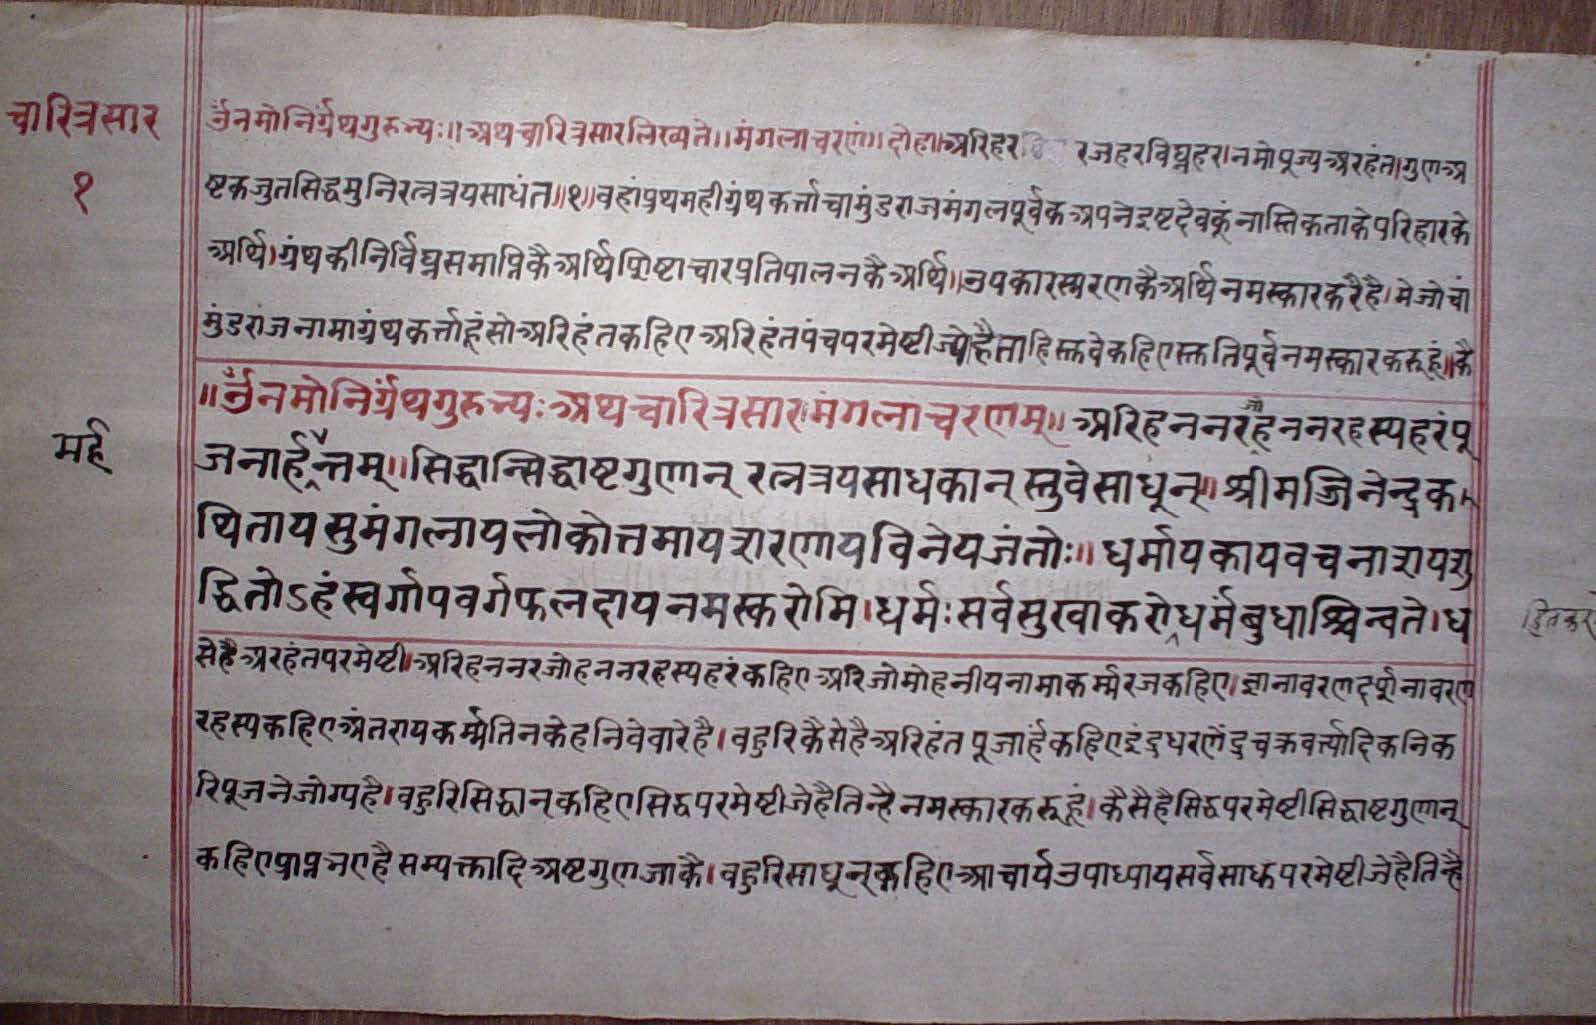 चारित्रसार
१
ॐनमोनिर्ग्रंथगुरुभ्यः॥अथचारित्रसारलिख्यते॥मंगलाचरणं॥दोहा॥अरिहर रजहरविघ्नहर।नमोपूज्यअरहंत।गुणअ
ष्टकजुतसिद्धमुनिरत्नत्रयसाधंत॥१॥वहांप्रथमहीग्रंथकर्त्ताचामुंडराजमंगलपूर्वकअपनेइष्टदेवकूंनास्तिकताकेपरिहारके
अर्थि।ग्रंथकीनिर्विघ्नसमाप्तिकैअर्थिशिष्टाचारप्रतिपालनकैअर्थि॥उपकारस्मरणकैअर्थिनमस्कारकरैहै।मेजोचां
मुंडराजनामाग्रंथकर्त्ताहूंसोअरिहंतकहिएअरिहंतपंचपरमेष्टीज्योहैताहिस्तवेकहिएस्तुतिपूर्वनमस्कारकरूहूं॥कै
॥ॐनमोनिर्ग्रंथगुरुभ्यःअथचारित्रसार।मंगलाचरणम्॥अरिहननरहननरहस्यहरंपू
जो
मर्ह
जनार्हन्तम्॥सिद्धान्सिद्धाष्टगुणान् रत्नत्रयसाधकान् स्तुवेसाधून्॥श्रीमज्जिनेन्द्रक
थितायसुमंगलायलोकोत्तमायशरणायविनेयजंतोः॥धर्मायकायवचनाशयशु
द्धितोऽहंस्वर्गापवर्गफलदायनमस्करोमि।धर्मःसर्वसुखाकरोधर्मंबुधाश्चिन्वते।ध
हितकरो
सेहैअरहंतपरमेष्टी।अरिहननरजोहननरहस्यहरंकहिएअरिजोमोहनीयनामाकर्म्मरजकहिए।ज्ञानावरणदर्शनावरण
रहस्यकहिएअंतरायकर्म्मतिनकेहनिवेवारेहै।वहुरिकैसेहैअरिहंत पूजार्हंकहिएइंद्रधरणेंद्रचक्रवर्त्त्यादिकनिक
रिपूजनेजोग्यहै।वहुरिसिद्धान्कहिएसिद्धपरमेष्टीजेहैतिन्हैनमस्कारकरूहूं।कैसैहैसिद्धपरमेष्टीसिद्धाष्टगुणान्
कहिएप्राप्तभएहैसम्यक्तादिअष्टगुणजाकै।वहुरिसाधून्कहिएआचार्यउपाध्यायसर्वसाधुपरमेष्टीजेहैतिन्है